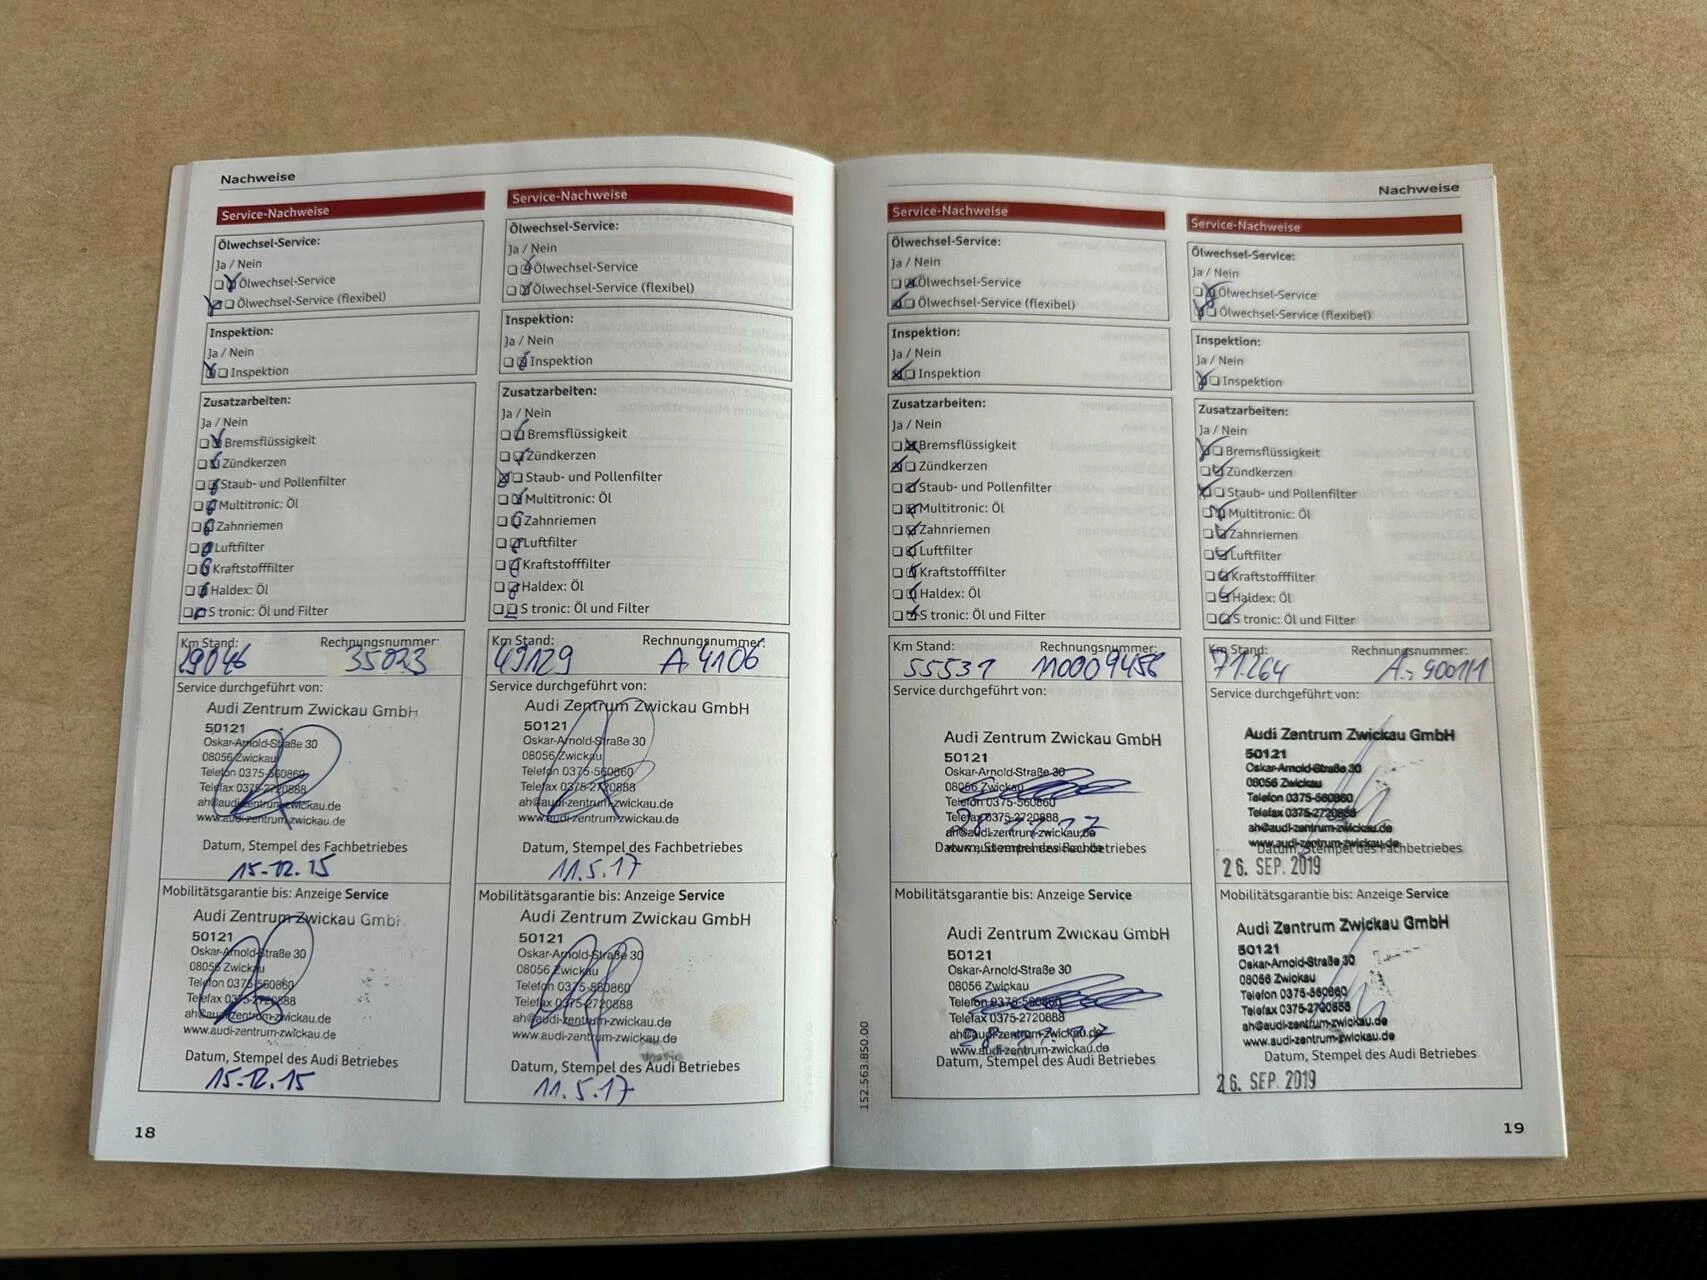 Nachweise
Service-Nachweise
Ölwechsel-Service:
Ja / Nein
Ölwechsel-Service
Ölwechsel-Service (flexibel)
Inspektion:
Ja / Nein
Inspektion
Zusatzarbeiten:
Ja / Nein
Bremsflüssigkeit
Zündkerzen
Staub- und Pollenfilter
Multitronic: Öl
Zahnriemen
Luftfilter
Kraftstofffilter
Haldex: Öl
S tronic: Öl und Filter
Km Stand: Rechnungsnummer:
29046 35023
Service durchgeführt von:
Audi Zentrum Zwickau GmbH
50121
Oskar-Arnold-Straße 30
08056 Zwickau
Telefon 0375-560860
Telefax 0375-2720888
ah@audi-zentrum-zwickau.de
www.audi-zentrum-zwickau.de
Datum, Stempel des Fachbetriebes
15.12.15
Mobilitätsgarantie bis: Anzeige Service
Audi Zentrum Zwickau GmbH
50121
Oskar-Arnold-Straße 30
08056 Zwickau
Telefon 0375-560860
Telefax 0375-2720888
ah@audi-zentrum-zwickau.de
www.audi-zentrum-zwickau.de
Datum, Stempel des Audi Betriebes
15.12.15
18
Service-Nachweise
Ölwechsel-Service:
Ja / Nein
Ölwechsel-Service
Ölwechsel-Service (flexibel)
Inspektion:
Ja / Nein
Inspektion
Zusatzarbeiten:
Ja / Nein
Bremsflüssigkeit
Zündkerzen
Staub- und Pollenfilter
Multitronic: Öl
Zahnriemen
Luftfilter
Kraftstofffilter
Haldex: Öl
S tronic: Öl und Filter
Km Stand: Rechnungsnummer:
49129 A 4106
Service durchgeführt von:
Audi Zentrum Zwickau GmbH
50121
Oskar-Arnold-Straße 30
08056 Zwickau
Telefon 0375-560860
Telefax 0375-2720888
ah@audi-zentrum-zwickau.de
www.audi-zentrum-zwickau.de
Datum, Stempel des Fachbetriebes
11.5.17
Mobilitätsgarantie bis: Anzeige Service
Audi Zentrum Zwickau GmbH
50121
Oskar-Arnold-Straße 30
08056 Zwickau
Telefon 0375-560860
Telefax 0375-2720888
ah@audi-zentrum-zwickau.de
www.audi-zentrum-zwickau.de
Datum, Stempel des Audi Betriebes
11.5.17
Nachweise
Service-Nachweise
Ölwechsel-Service:
Ja / Nein
Ölwechsel-Service
Ölwechsel-Service (flexibel)
Inspektion:
Ja / Nein
Inspektion
Zusatzarbeiten:
Ja / Nein
Bremsflüssigkeit
Zündkerzen
Staub- und Pollenfilter
Multitronic: Öl
Zahnriemen
Luftfilter
Kraftstofffilter
Haldex: Öl
S tronic: Öl und Filter
Km Stand: Rechnungsnummer:
55531 110009456
Service durchgeführt von:
Audi Zentrum Zwickau GmbH
50121
Oskar-Arnold-Straße 30
08056 Zwickau
Telefon 0375-560860
Telefax 0375-2720888
ah@audi-zentrum-zwickau.de
www.audi-zentrum-zwickau.de
Datum, Stempel des Fachbetriebes
Mobilitätsgarantie bis: Anzeige Service
Audi Zentrum Zwickau GmbH
50121
Oskar-Arnold-Straße 30
08056 Zwickau
Telefon 0375-560860
Telefax 0375-2720888
ah@audi-zentrum-zwickau.de
www.audi-zentrum-zwickau.de
Datum, Stempel des Audi Betriebes
152.563.850.00
Service-Nachweise
Ölwechsel-Service:
Ja / Nein
Ölwechsel-Service
Ölwechsel-Service (flexibel)
Inspektion:
Ja / Nein
Inspektion
Zusatzarbeiten:
Ja / Nein
Bremsflüssigkeit
Zündkerzen
Staub- und Pollenfilter
Multitronic: Öl
Zahnriemen
Luftfilter
Kraftstofffilter
Haldex: Öl
S tronic: Öl und Filter
Km Stand: Rechnungsnummer:
71.264
Service durchgeführt von:
Audi Zentrum Zwickau GmbH
50121
Oskar-Arnold-Straße 30
08056 Zwickau
Telefon 0375-560860
Telefax 0375-2720888
ah@audi-zentrum-zwickau.de
www.audi-zentrum-zwickau.de
Datum, Stempel des Fachbetriebes
26. SEP. 2019
Mobilitätsgarantie bis: Anzeige Service
Audi Zentrum Zwickau GmbH
50121
Oskar-Arnold-Straße 30
08056 Zwickau
Telefon 0375-560860
Telefax 0375-2720888
ah@audi-zentrum-zwickau.de
www.audi-zentrum-zwickau.de
Datum, Stempel des Audi Betriebes
26. SEP. 2019
19